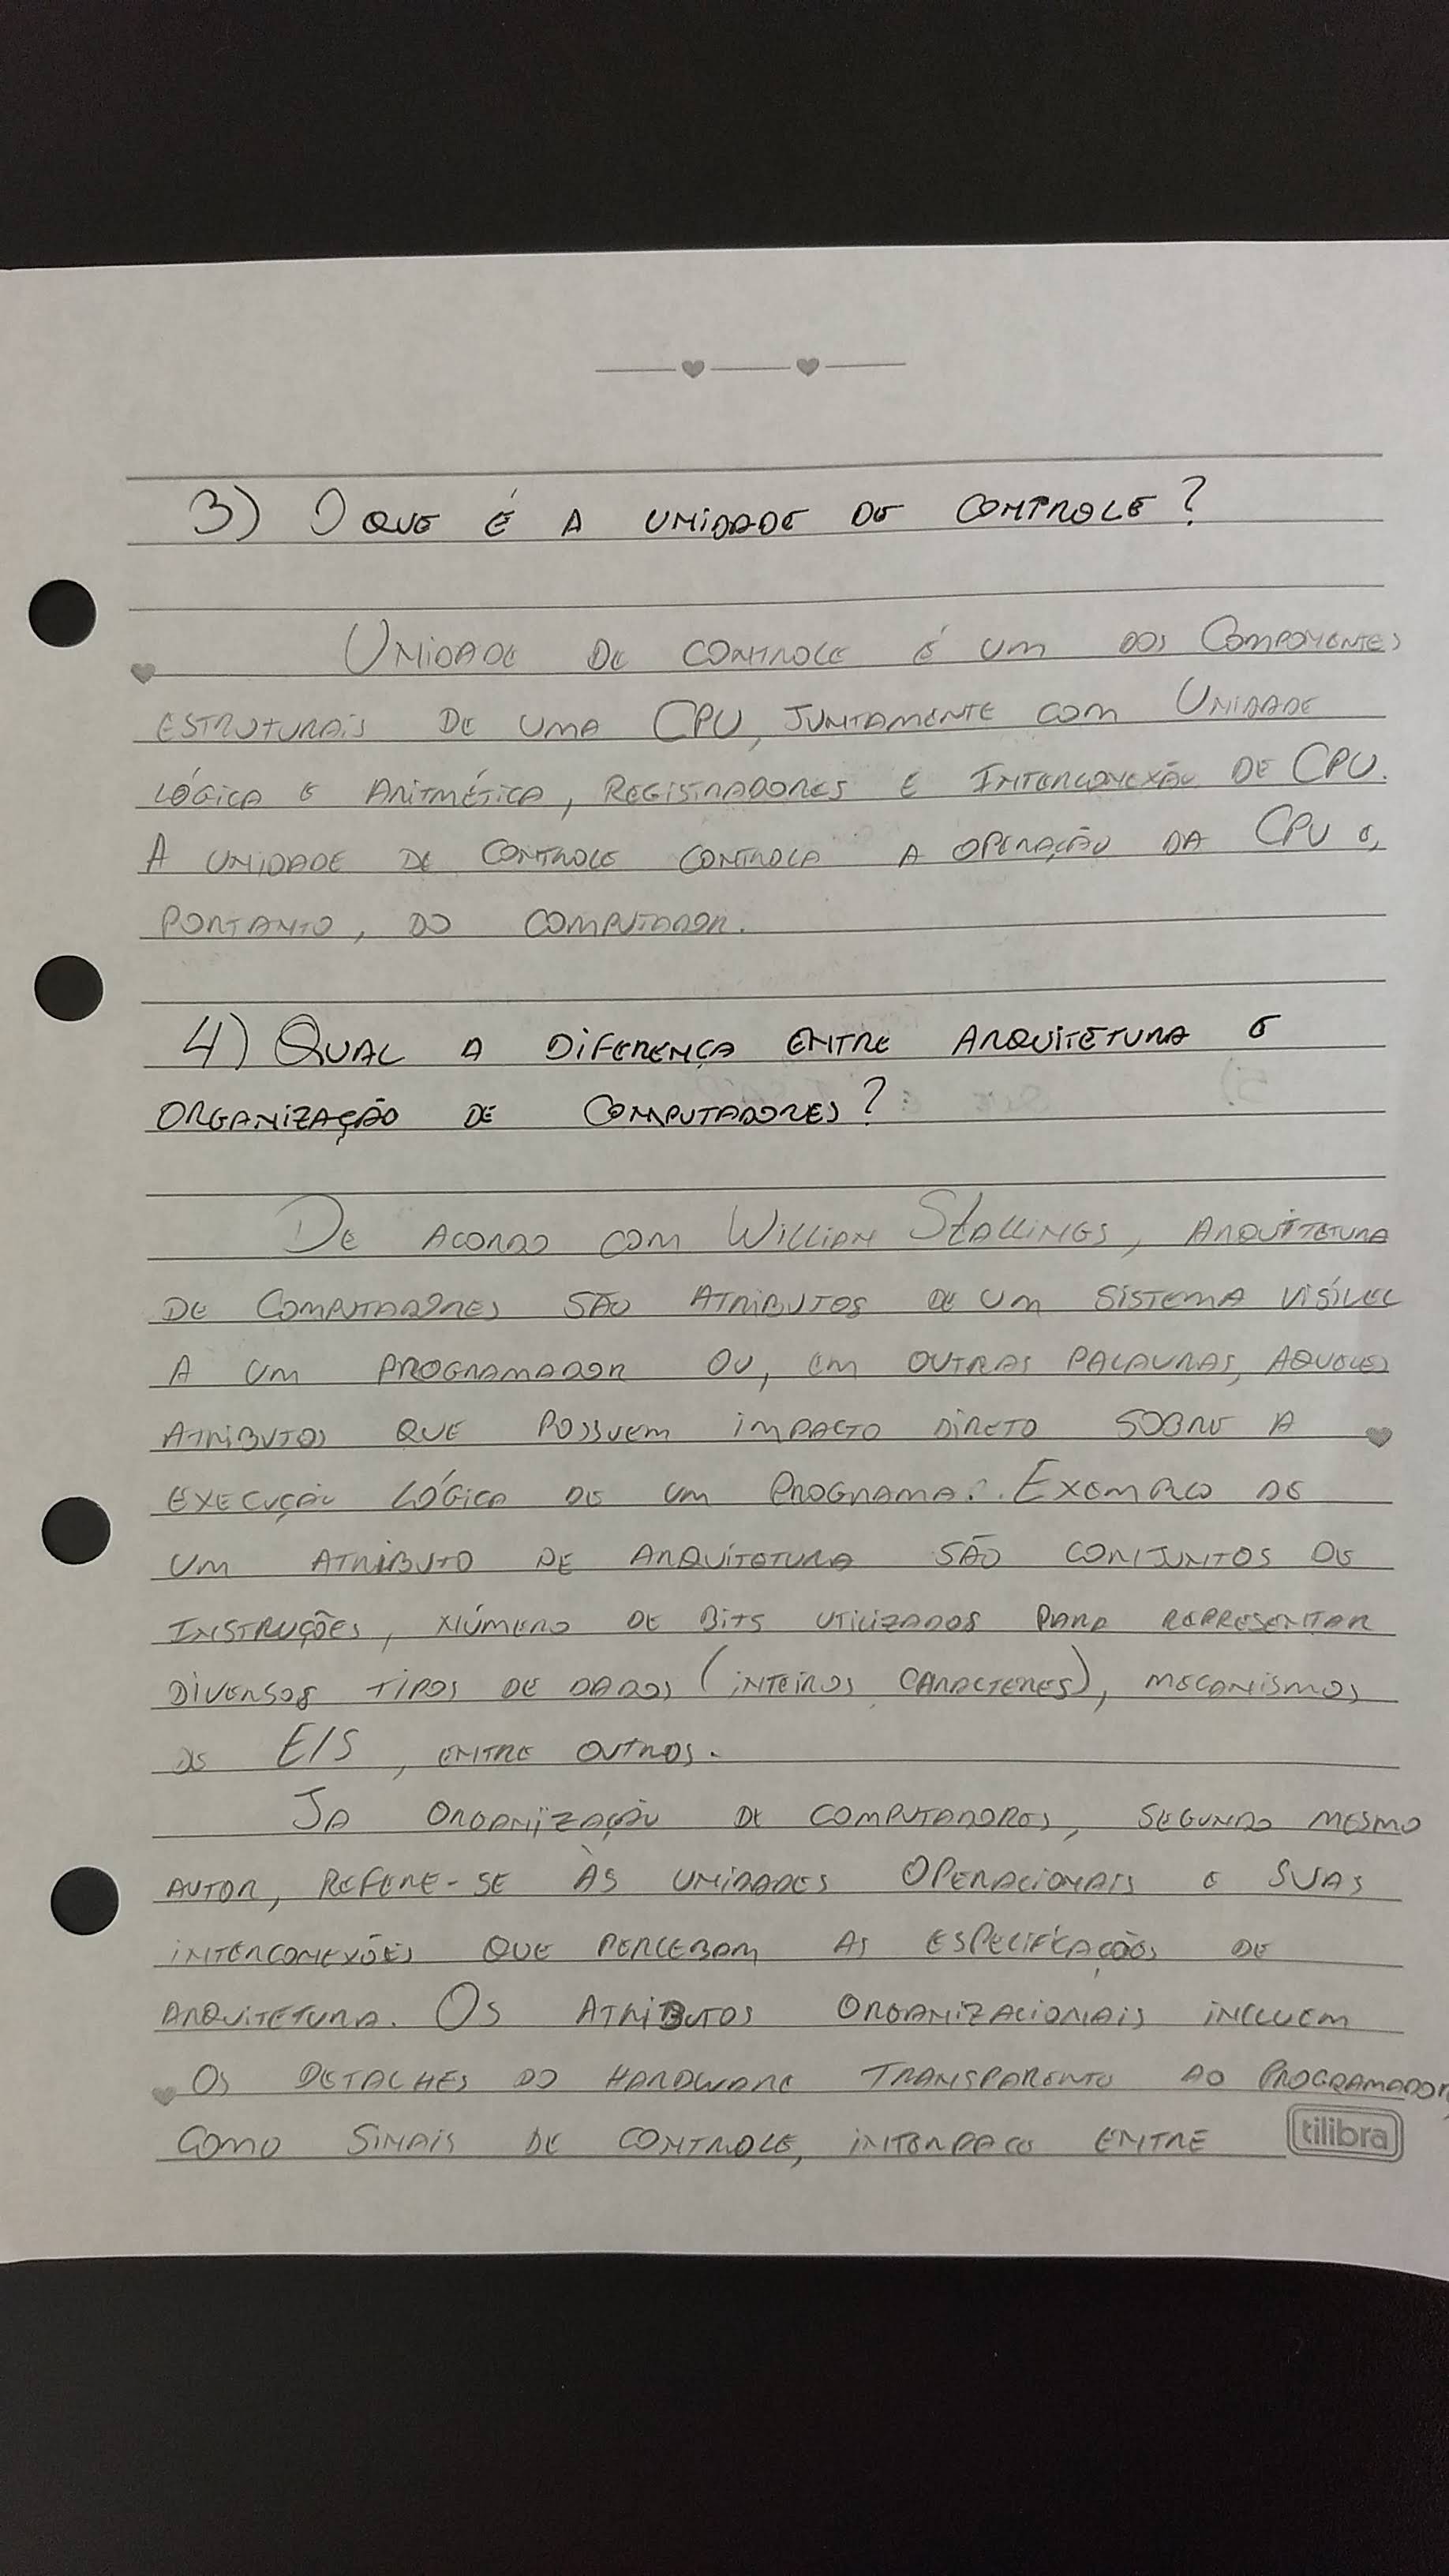 3) O QUE É A UNIDADE DE CONTROLE?
UNIDADE DE CONTROLE É UM DOS COMPONENTES
ESTRUTURAIS DE UMA CPU, JUNTAMENTE COM UNIDADE
LÓGICA E ARITMÉTICA, REGISTRADORES E INTERCONEXÃO DE CPU.
A UNIDADE DE CONTROLE CONTROLA A OPERAÇÃO DA CPU E,
PORTANTO, DO COMPUTADOR.
4) QUAL A DIFERENÇA ENTRE ARQUITETURA E
ORGANIZAÇÃO DE COMPUTADORES?
DE ACORDO COM WILLIAN STALLINGS, ARQUITETURA
DE COMPUTADORES SÃO ATRIBUTOS DE UM SISTEMA VISÍVEL
A UM PROGRAMADOR OU, EM OUTRAS PALAVRAS, AQUELES
ATRIBUTOS QUE POSSUEM IMPACTO DIRETO SOBRE A
EXECUÇÃO LÓGICA DE UM PROGRAMA. EXEMPLO DE
UM ATRIBUTO DE ARQUITETURA SÃO CONJUNTOS DE
INSTRUÇÕES, NÚMERO DE BITS UTILIZADOS PARA REPRESENTAR
DIVERSOS TIPOS DE DADOS (INTEIROS CARACTERES), MECANISMOS
DE E/S, ENTRE OUTROS.
JA ORGANIZAÇÃO DE COMPUTADORES, SEGUNDO MESMO
AUTOR, REFERE-SE ÀS UNIDADES OPERACIONAIS E SUAS
INTERCONEXÕES QUE PERCEBAM AS ESPECIFICAÇÕES DE
ARQUITETURA. OS ATRIBUTOS ORGANIZACIONAIS INCLUEM
OS DETALHES DO HARDWARE TRANSPARENTE AO PROGRAMADOR,
COMO SINAIS DE CONTROLE, INTERFACE ENTRE
tilibra